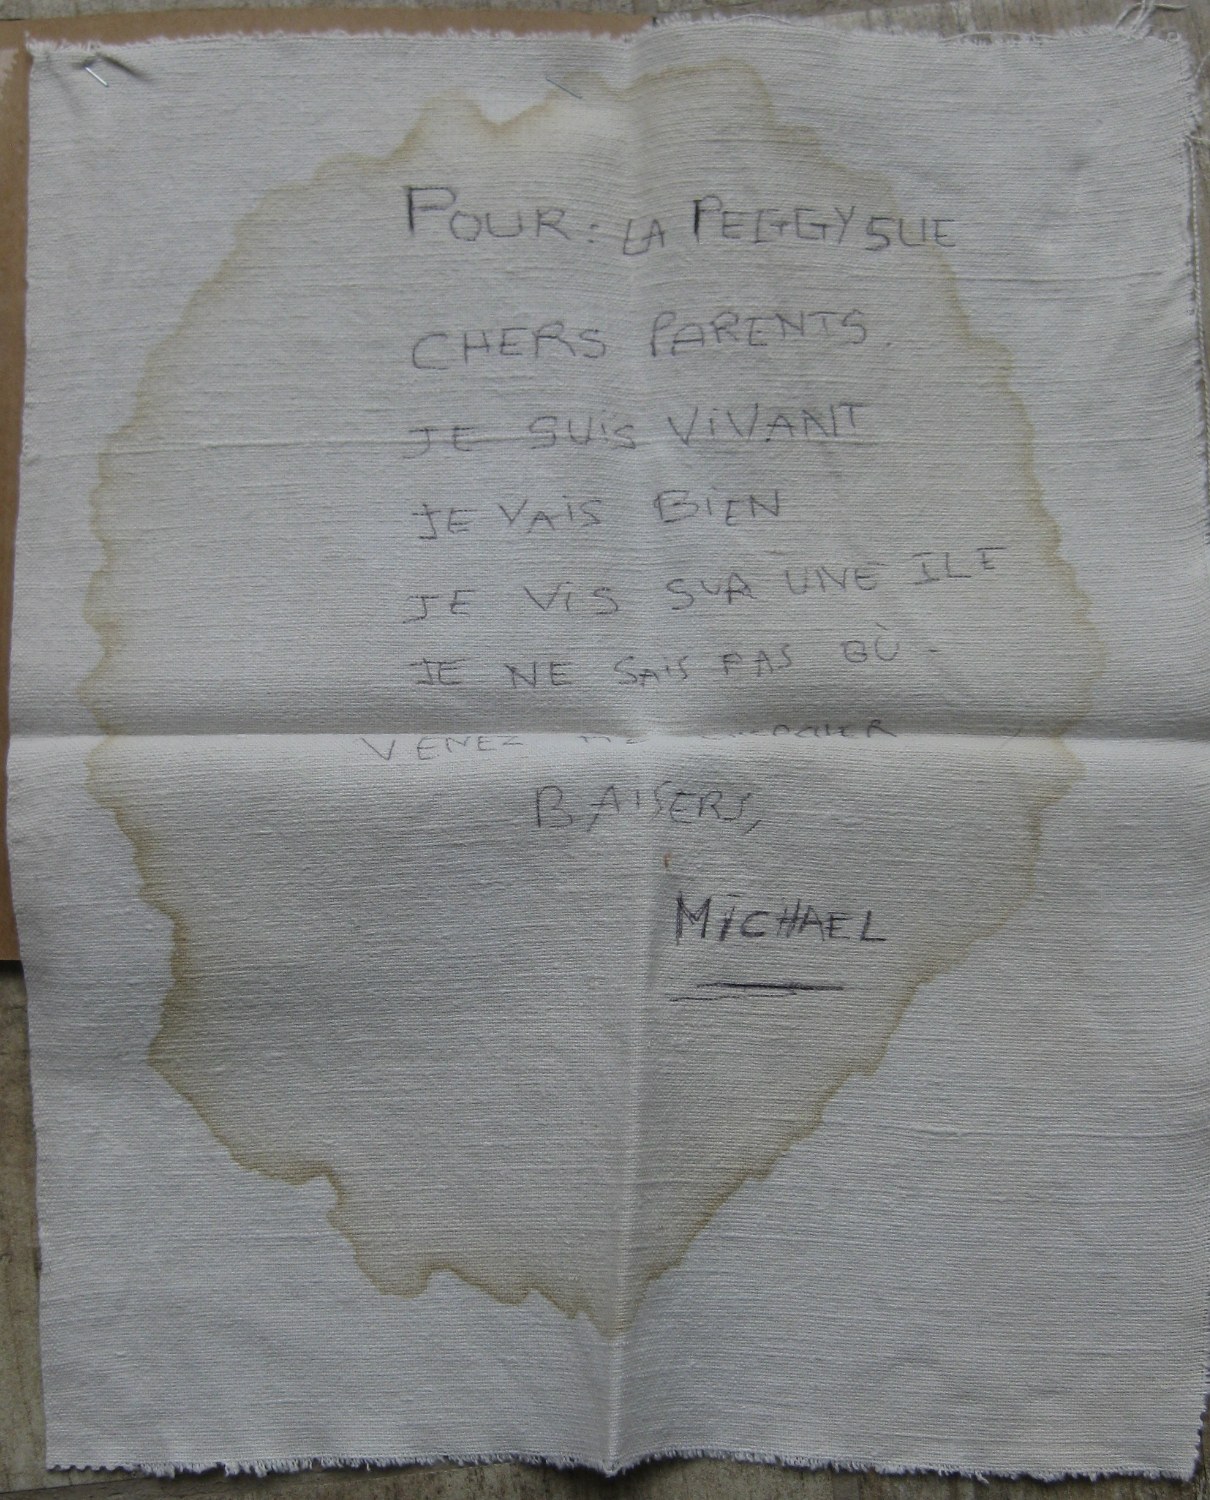 POUR : LA PEGGY SUE
CHERS PARENTS.
JE SUiS ViVANT
JE VAiS BiEN
JE ViS SUR UNE ILE
JE NE SAiS PAS OÙ -
VENEZ
BAISERS,
MICHAEL